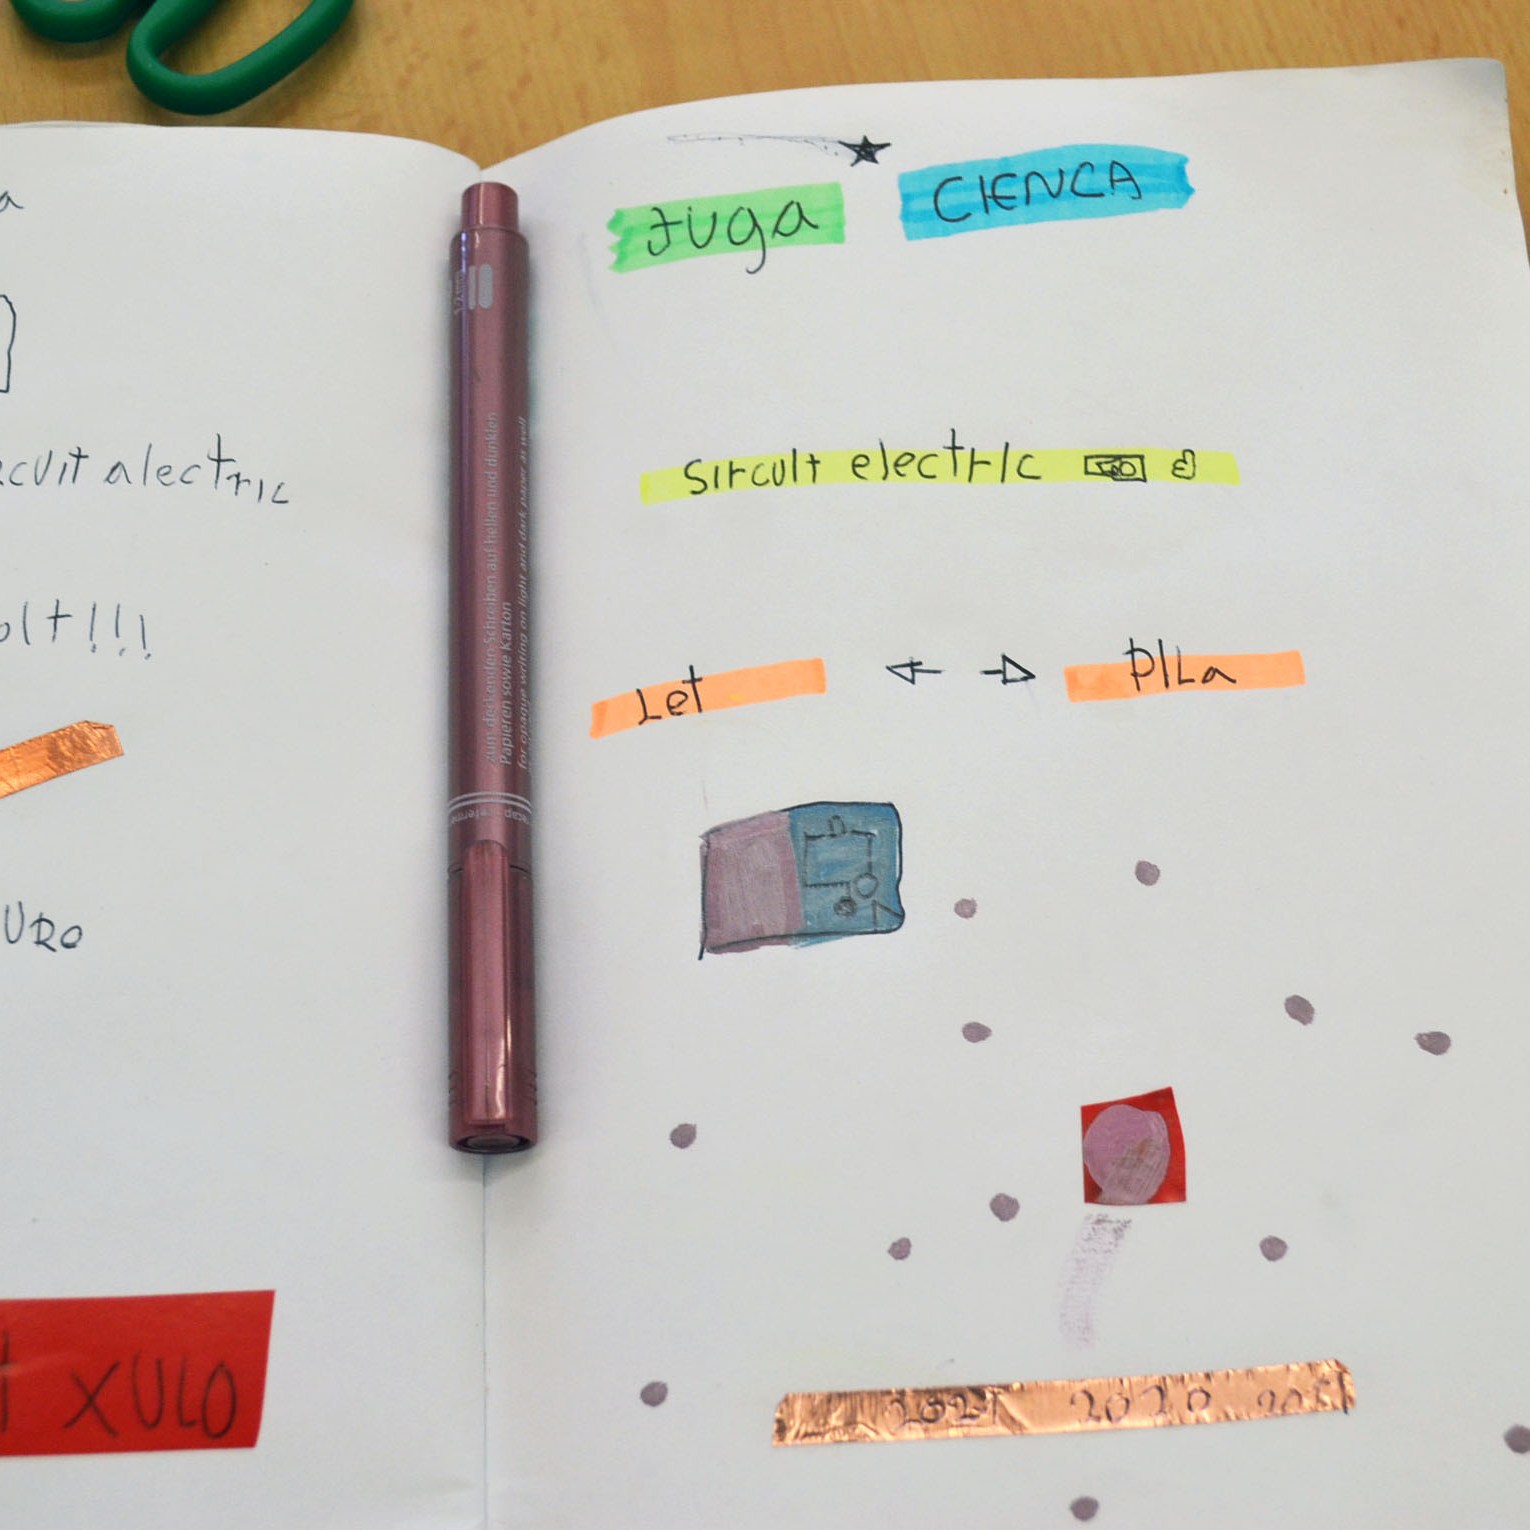 a
cuit alectric
olt!!!
URO
XULO
zum deckenden Schreiben auf hellen und dunklen
Papieren sowie Karton
for opaque writing on light and dark paper as well
JUGA CIENCA
sircuit electric
Let PILa
2021 2020